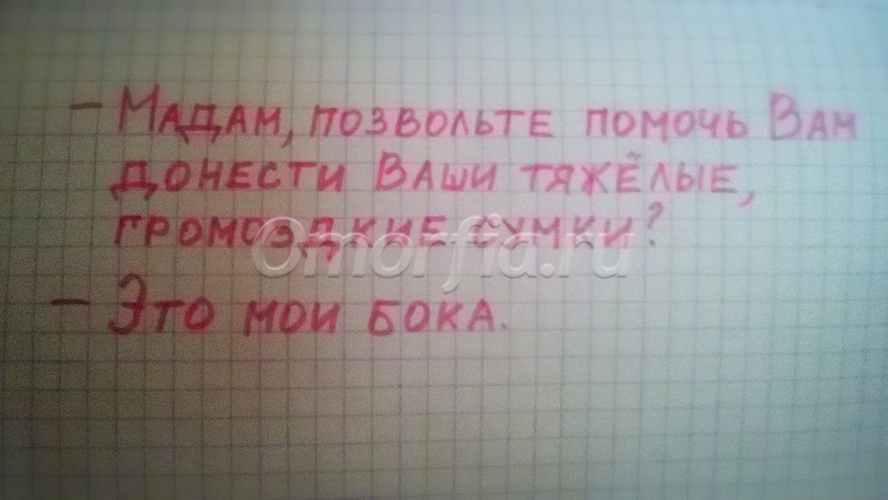 – Мадам, позвольте помочь Вам
донести Ваши тяжёлые,
громоздкие сумки?
Omorfia.ru
– Это мои бока.